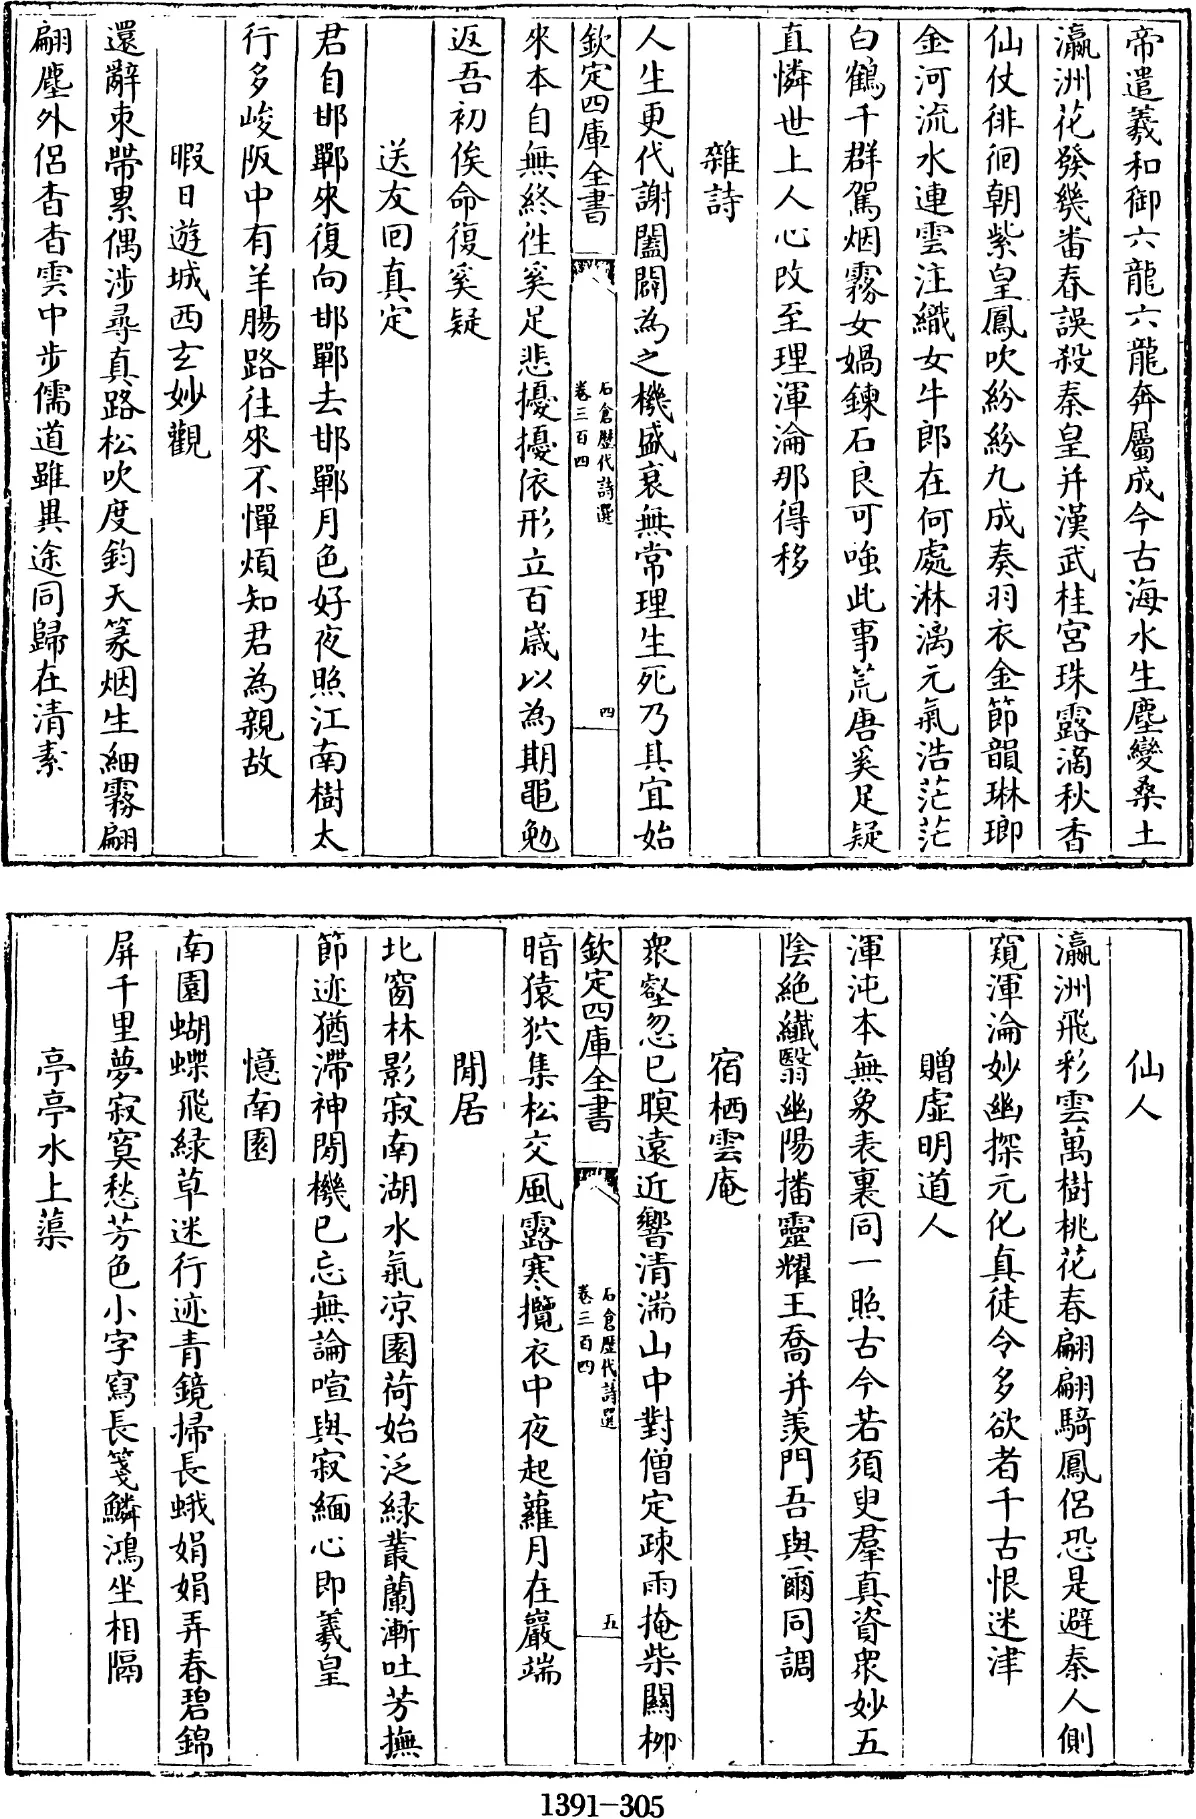 帝遣羲和御六龍六龍奔屬成今古海水生塵變桑土
瀛洲花發幾番春誤殺秦皇并漢武桂宮珠露滴秋香
仙仗徘徊朝紫皇鳳吹紛紛九成奏羽衣金節韻琳瑯
金河流水連雲注織女牛郎在何處淋漓元氣浩茫茫
白鶴千群駕烟霧女媧鍊石良可嗤此事荒唐奚足疑
直憐世上人心改至理渾淪那得移
雜詩
人生更代謝闔闢為之機盛衰無常理生死乃其宜始
欽定四庫全書
石倉歷代詩選
卷三百四
四
來本自無終徃奚足悲擾擾依形立百歲以為期黽勉
返吾初俟命復奚疑
送友回真定
君自邯鄲來復向邯鄲去邯鄲月色好夜照江南樹太
行多峻阪中有羊腸路往來不憚煩知君為親故
暇日遊城西玄妙觀
還辭束帶累偶涉尋真路松吹度鈞天篆烟生細霧翩
翩塵外侶杳杳雲中步儒道雖異途同歸在清素
仙人
瀛洲飛彩雲萬樹桃花春翩翩騎鳳侶恐是避秦人側
窺渾淪妙幽探元化真徒令多欲者千古恨迷津
贈虛明道人
渾沌本無象表裏同一照古今若須臾羣真資衆妙五
陰絶纖翳幽陽播靈耀王喬并羨門吾與爾同調
宿栖雲庵
衆壑忽已暝遠近響清湍山中對僧定疎雨掩柴關柳
欽定四庫全書
石倉歷代詩選
卷三百四
五
暗猿狖集松交風露寒攬衣中夜起蘿月在巖端
閒居
北窗林影寂南湖水氣凉園荷始泛綠叢蘭漸吐芳撫
節迹猶滯神閒機已忘無論喧與寂緬心即羲皇
憶南園
南園蝴蝶飛緑草迷行迹青鏡掃長蛾娟娟弄春碧錦
屏千里夢寂寞愁芳色小字寫長箋鱗鴻坐相隔
亭亭水上蕖
1391-305